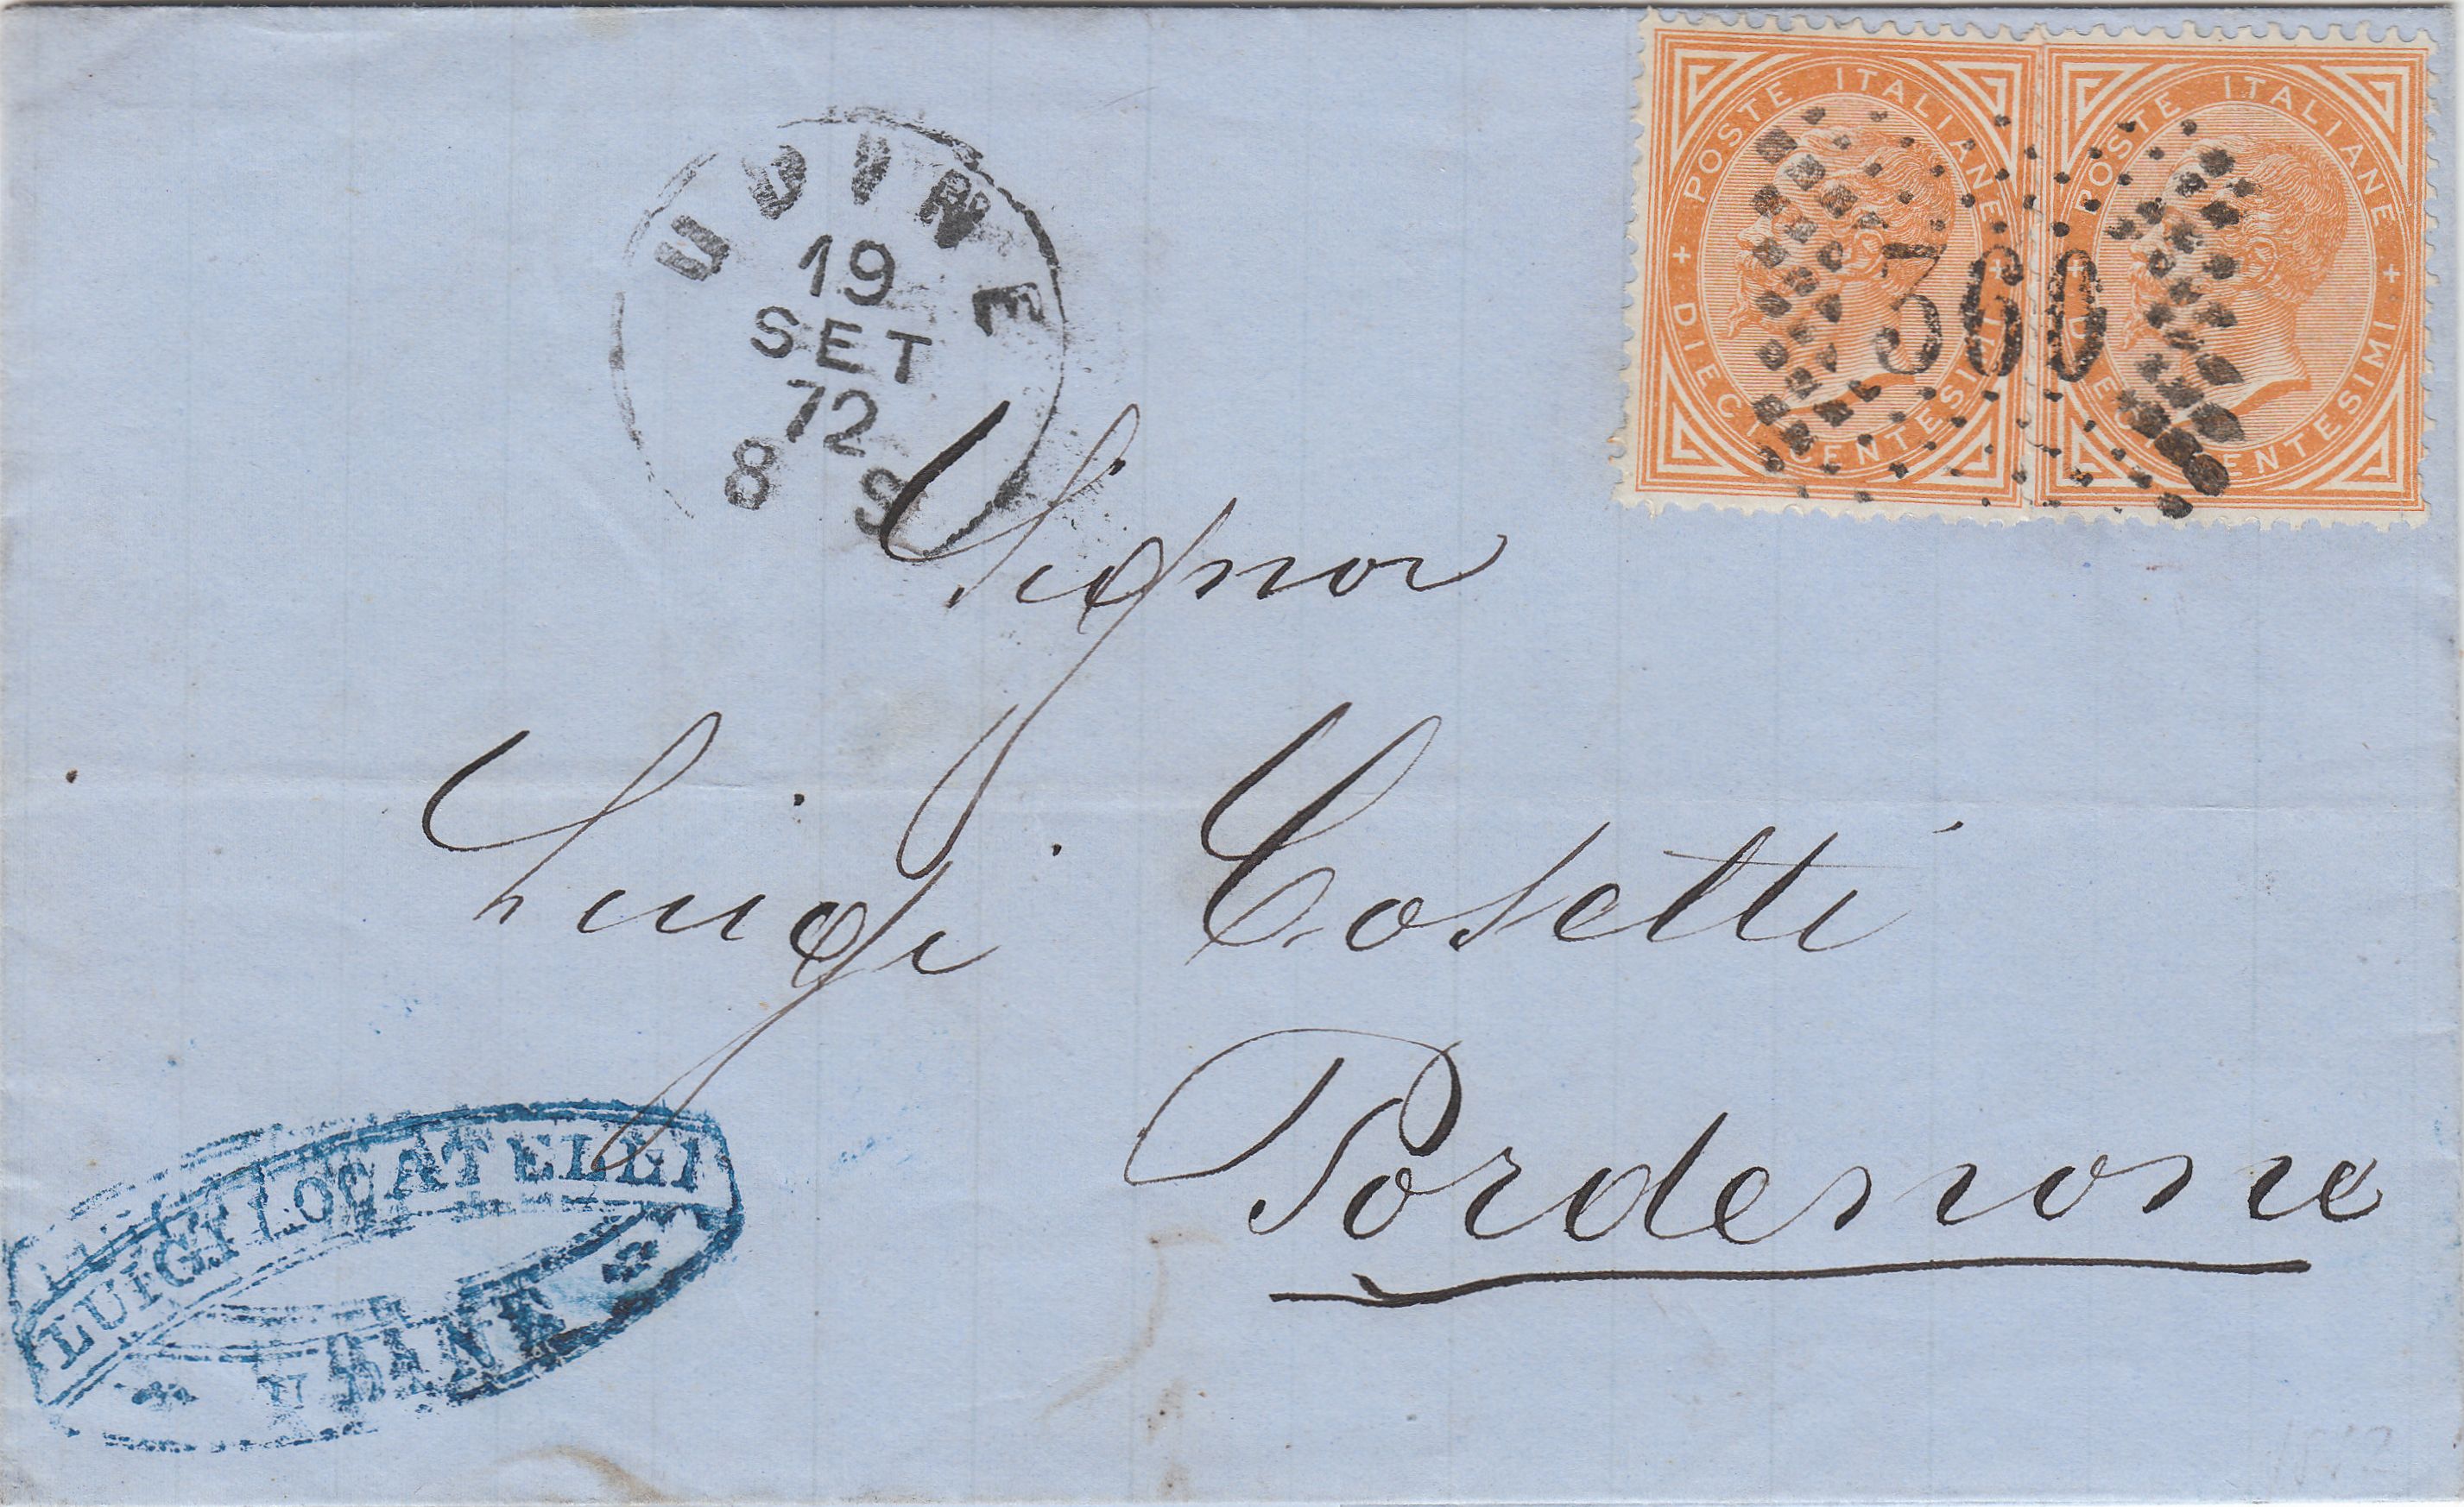 POSTE ITALIANE
DIECI CENTESIMI
POSTE ITALIANE
DIECI CENTESIMI
360
UDINE
19
SET
72
8 S
Signor
Luigi Cosetti
Pordenone
LUIGI LOCATELLI
UDINE